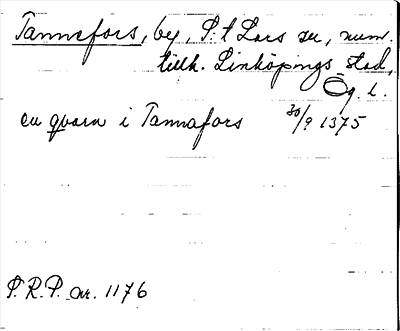 Tannefors, by, S:t Lars sn, num.
tillh. Linköpings stad,
Ög. l.
en qvarn i Tannafors 30/9 1375
P.R.P. nr. 1176